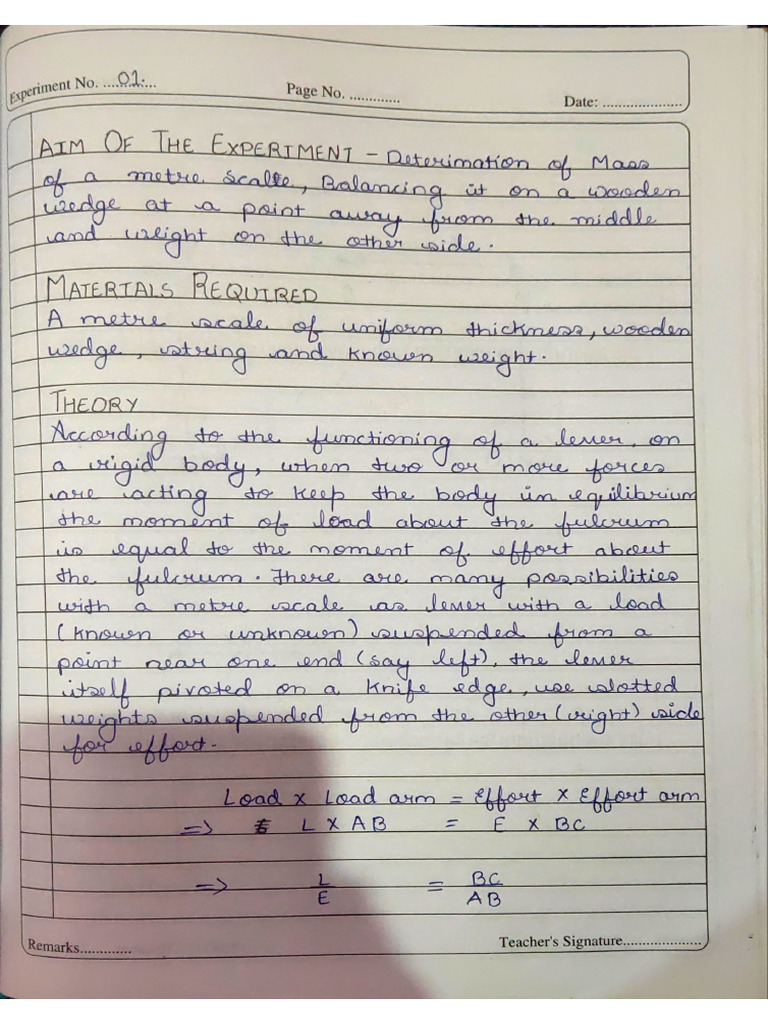 Experiment No. ....01....
Page No. .............
Date: .....................
AIM OF THE EXPERIMENT - Deterimation of Mass
of a metre scale, Balancing it on a wooden
wedge at a point away from the middle
and weight on the other side.
MATERIALS REQUIRED
A metre scale of uniform thickness, wooden
wedge, string and known weight.
THEORY
According to the functioning of a lever, on
a rigid body, when two or more forces
are acting to keep the body in equilibrium
the moment of load about the fulcrum
is equal to the moment of effort about
the fulcrum. There are many possibilities
with a metre scale as lever with a load
(known or unknown) suspended from a
point near one end (say left), the lever
itself pivoted on a knife edge, use slotted
weights suspended from the other (right) side
for effort.
Load x Load arm = Effort x Effort arm
=> L X AB = E X BC
=> L/E = BC/AB
Remarks.............
Teacher's Signature.....................